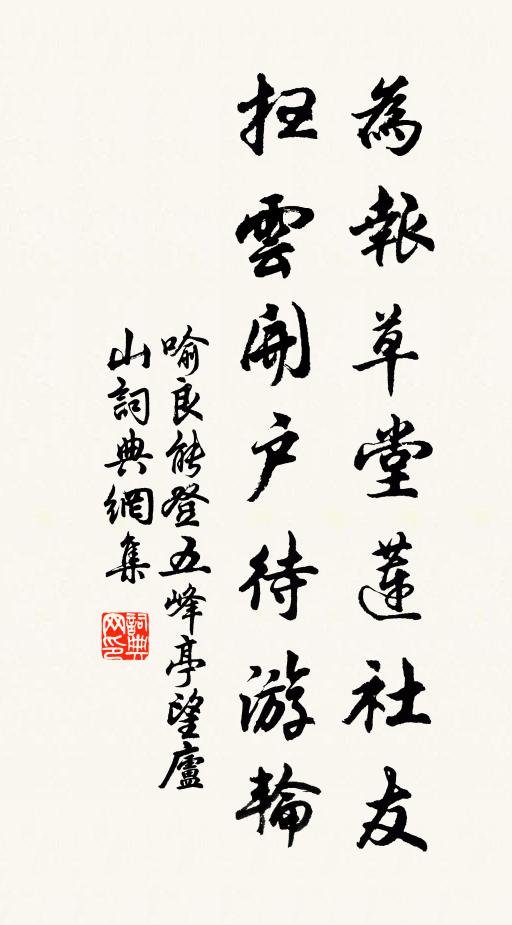 為報草堂蓮社友
扫雲開户待游輪
喻良能登五峰亭望廬
山詞典網集
詞典
网印